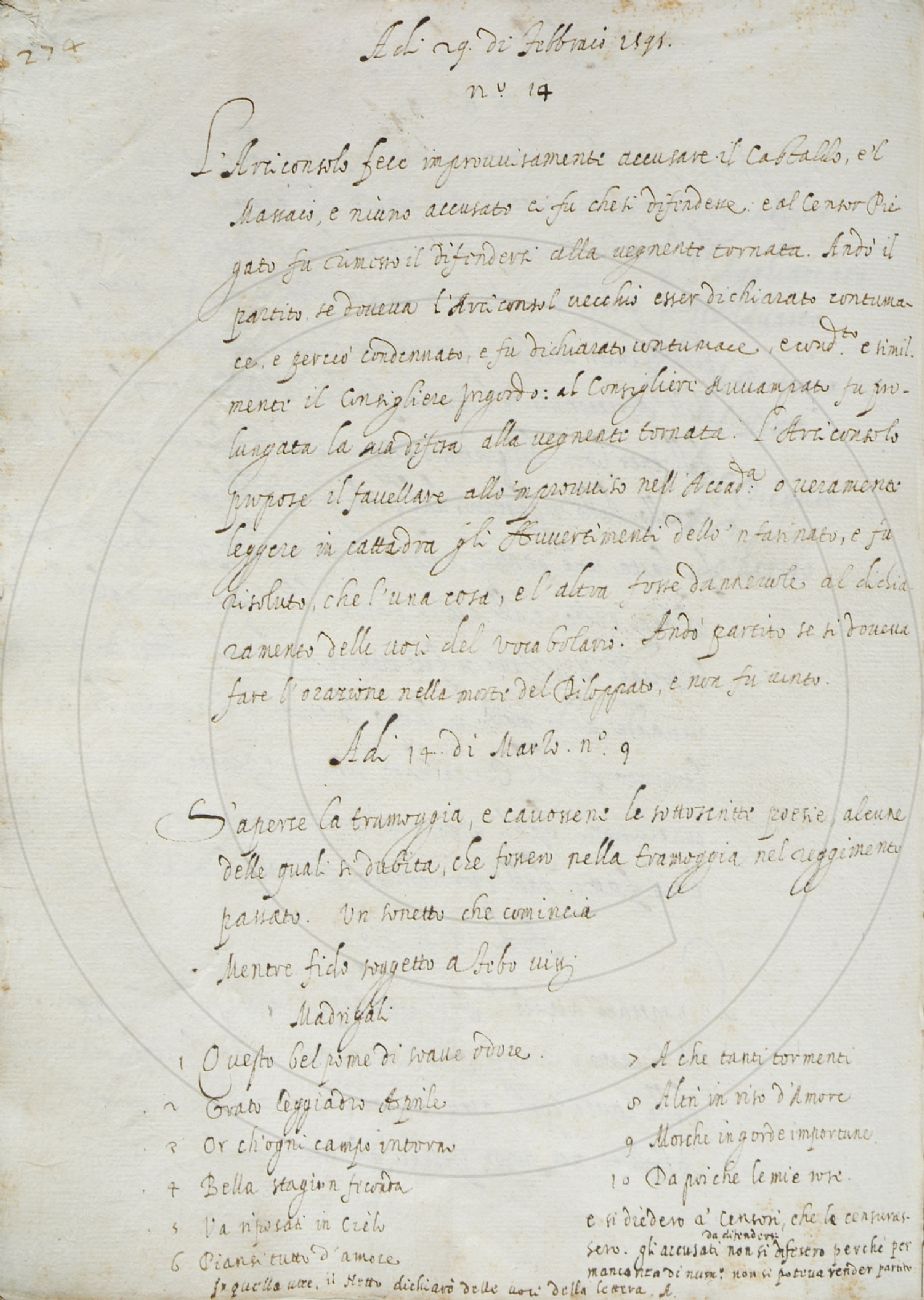 274
Adi 29. di Febbraio 1591.
n.º 14
L'Arciconsolo fece improvvisamente accusare il Castaldo, e'l
Massaio, e niuno accusato ci fu che si difendesse: e al Censor Pie
gato fu rimesso il difendersi alla vegnente tornata. Andò il
partito, se doveva l'Arciconsol vecchio esser dichiarato contuma-
ce, e perciò condennato, e fu dichiarato contumace, e cond.to e simil-
mente il Consigliere 'ngordo: al Consigliere Avvampato fu pro-
lungata la sua difesa alla vegnente tornata. L'Arciconsolo
propose il favellare allo 'mprovviso nell'Accad.a o veramente
leggere in cattedra gli Avvertimenti dello 'nfarinato, e fu
risoluto, che l'una cosa, e l'altra fosse dannevole al dichia
ramento delle voci del vocabolario. Andò partito se si doveva
fare l'orazione nella morte del Diloppato, e non fu vinto.
Adi 14. di Marzo. n.º 9
S'aperse la tramoggia, e cavossene le sottoscritte poesie, alcune
delle quali si dubita, che fossero nella tramoggia nel reggimento
passato. Un sonetto che comincia
Mentre fido soggetto a Febo
Madrigali
1 Questo bel pome di soave odore.
2 Grato leggiadro Aprile
3 Or ch'ogni campo intorno
4 Bella stagion feconda
5 Va riposati in Cielo
6 Piansi tutto d'amore
7 A che tanti tormenti
8 Altri in viso d'Amore
9 Mosche ingorde importune
10 Da poiche le mie rose
e si diedero a' Censori, che le censuras-
sero. gli accusati da difendersi non si difesero perchè per
mancanza di num.º non si poteva render partito
In quello, il Netto dichiarò delle voci della lettera. A.